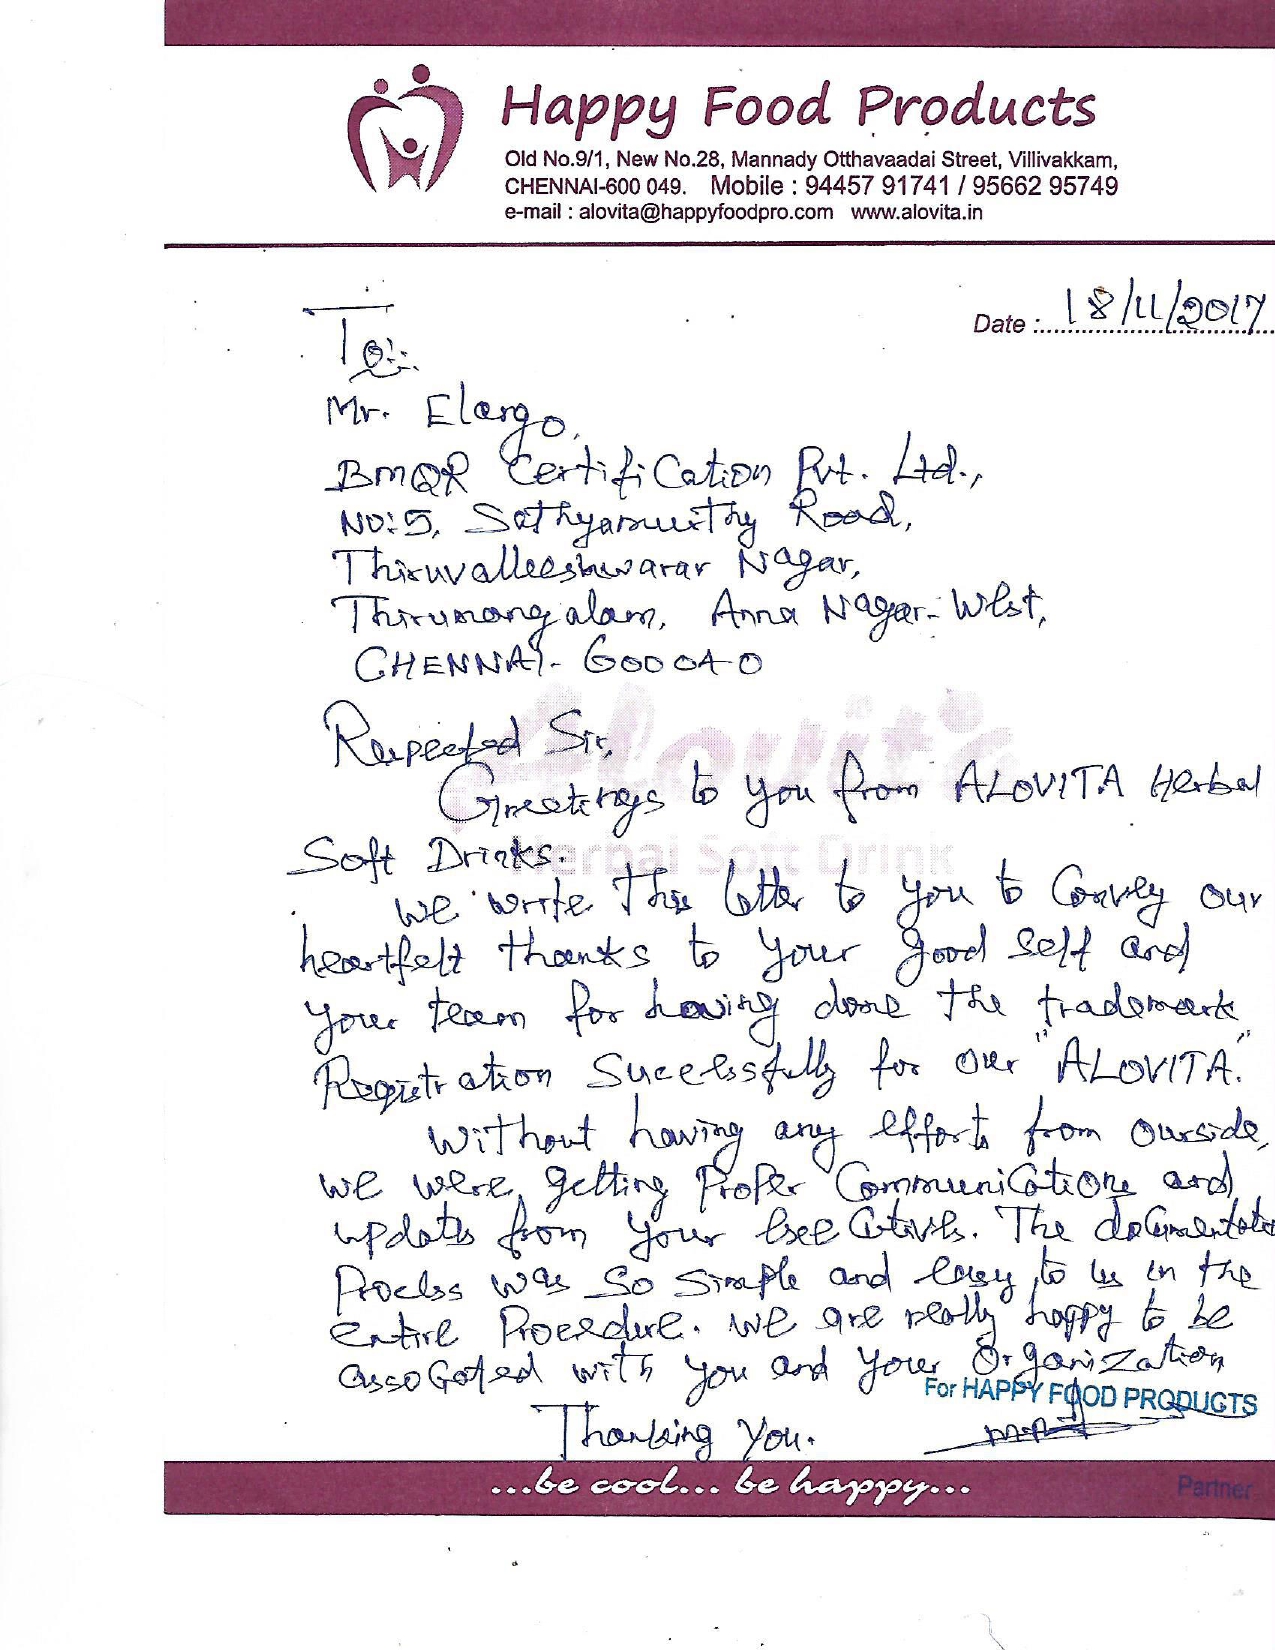 Happy Food Products
Old No.9/1, New No.28, Mannady Otthavaadai Street, Villivakkam,
CHENNAI-600 049. Mobile : 94457 91741 / 95662 95749
e-mail : alovita@happyfoodpro.com www.alovita.in
Date : 18/11/2017
To:
Mr. Elango,
BMQR Certification Pvt. Ltd.,
No: 5, Sathyamurthy Road,
Thiruvalleeshwarar Nagar,
Thirumangalam, Anna Nagar-West,
CHENNAI- 600040
Respected Sir,
Alovita
Greetings to you from ALOVITA Herbal
Soft Drinks.
Herbal Soft Drink
We write this letter to you to Convey our
heartfelt thanks to your good self and
your team for having done the trademark
Registration Sucessfully for our "ALOVITA".
Without having any efforts from ourside,
we were getting Proper Communications and
updates from your . The documentatio
Process was so simple and easy to us in the
entire Procedure. We are really happy to be
associated with you and your Organization
For HAPPY FOOD PRODUCTS
Thanking You.
...be cool... be happy...
Partner